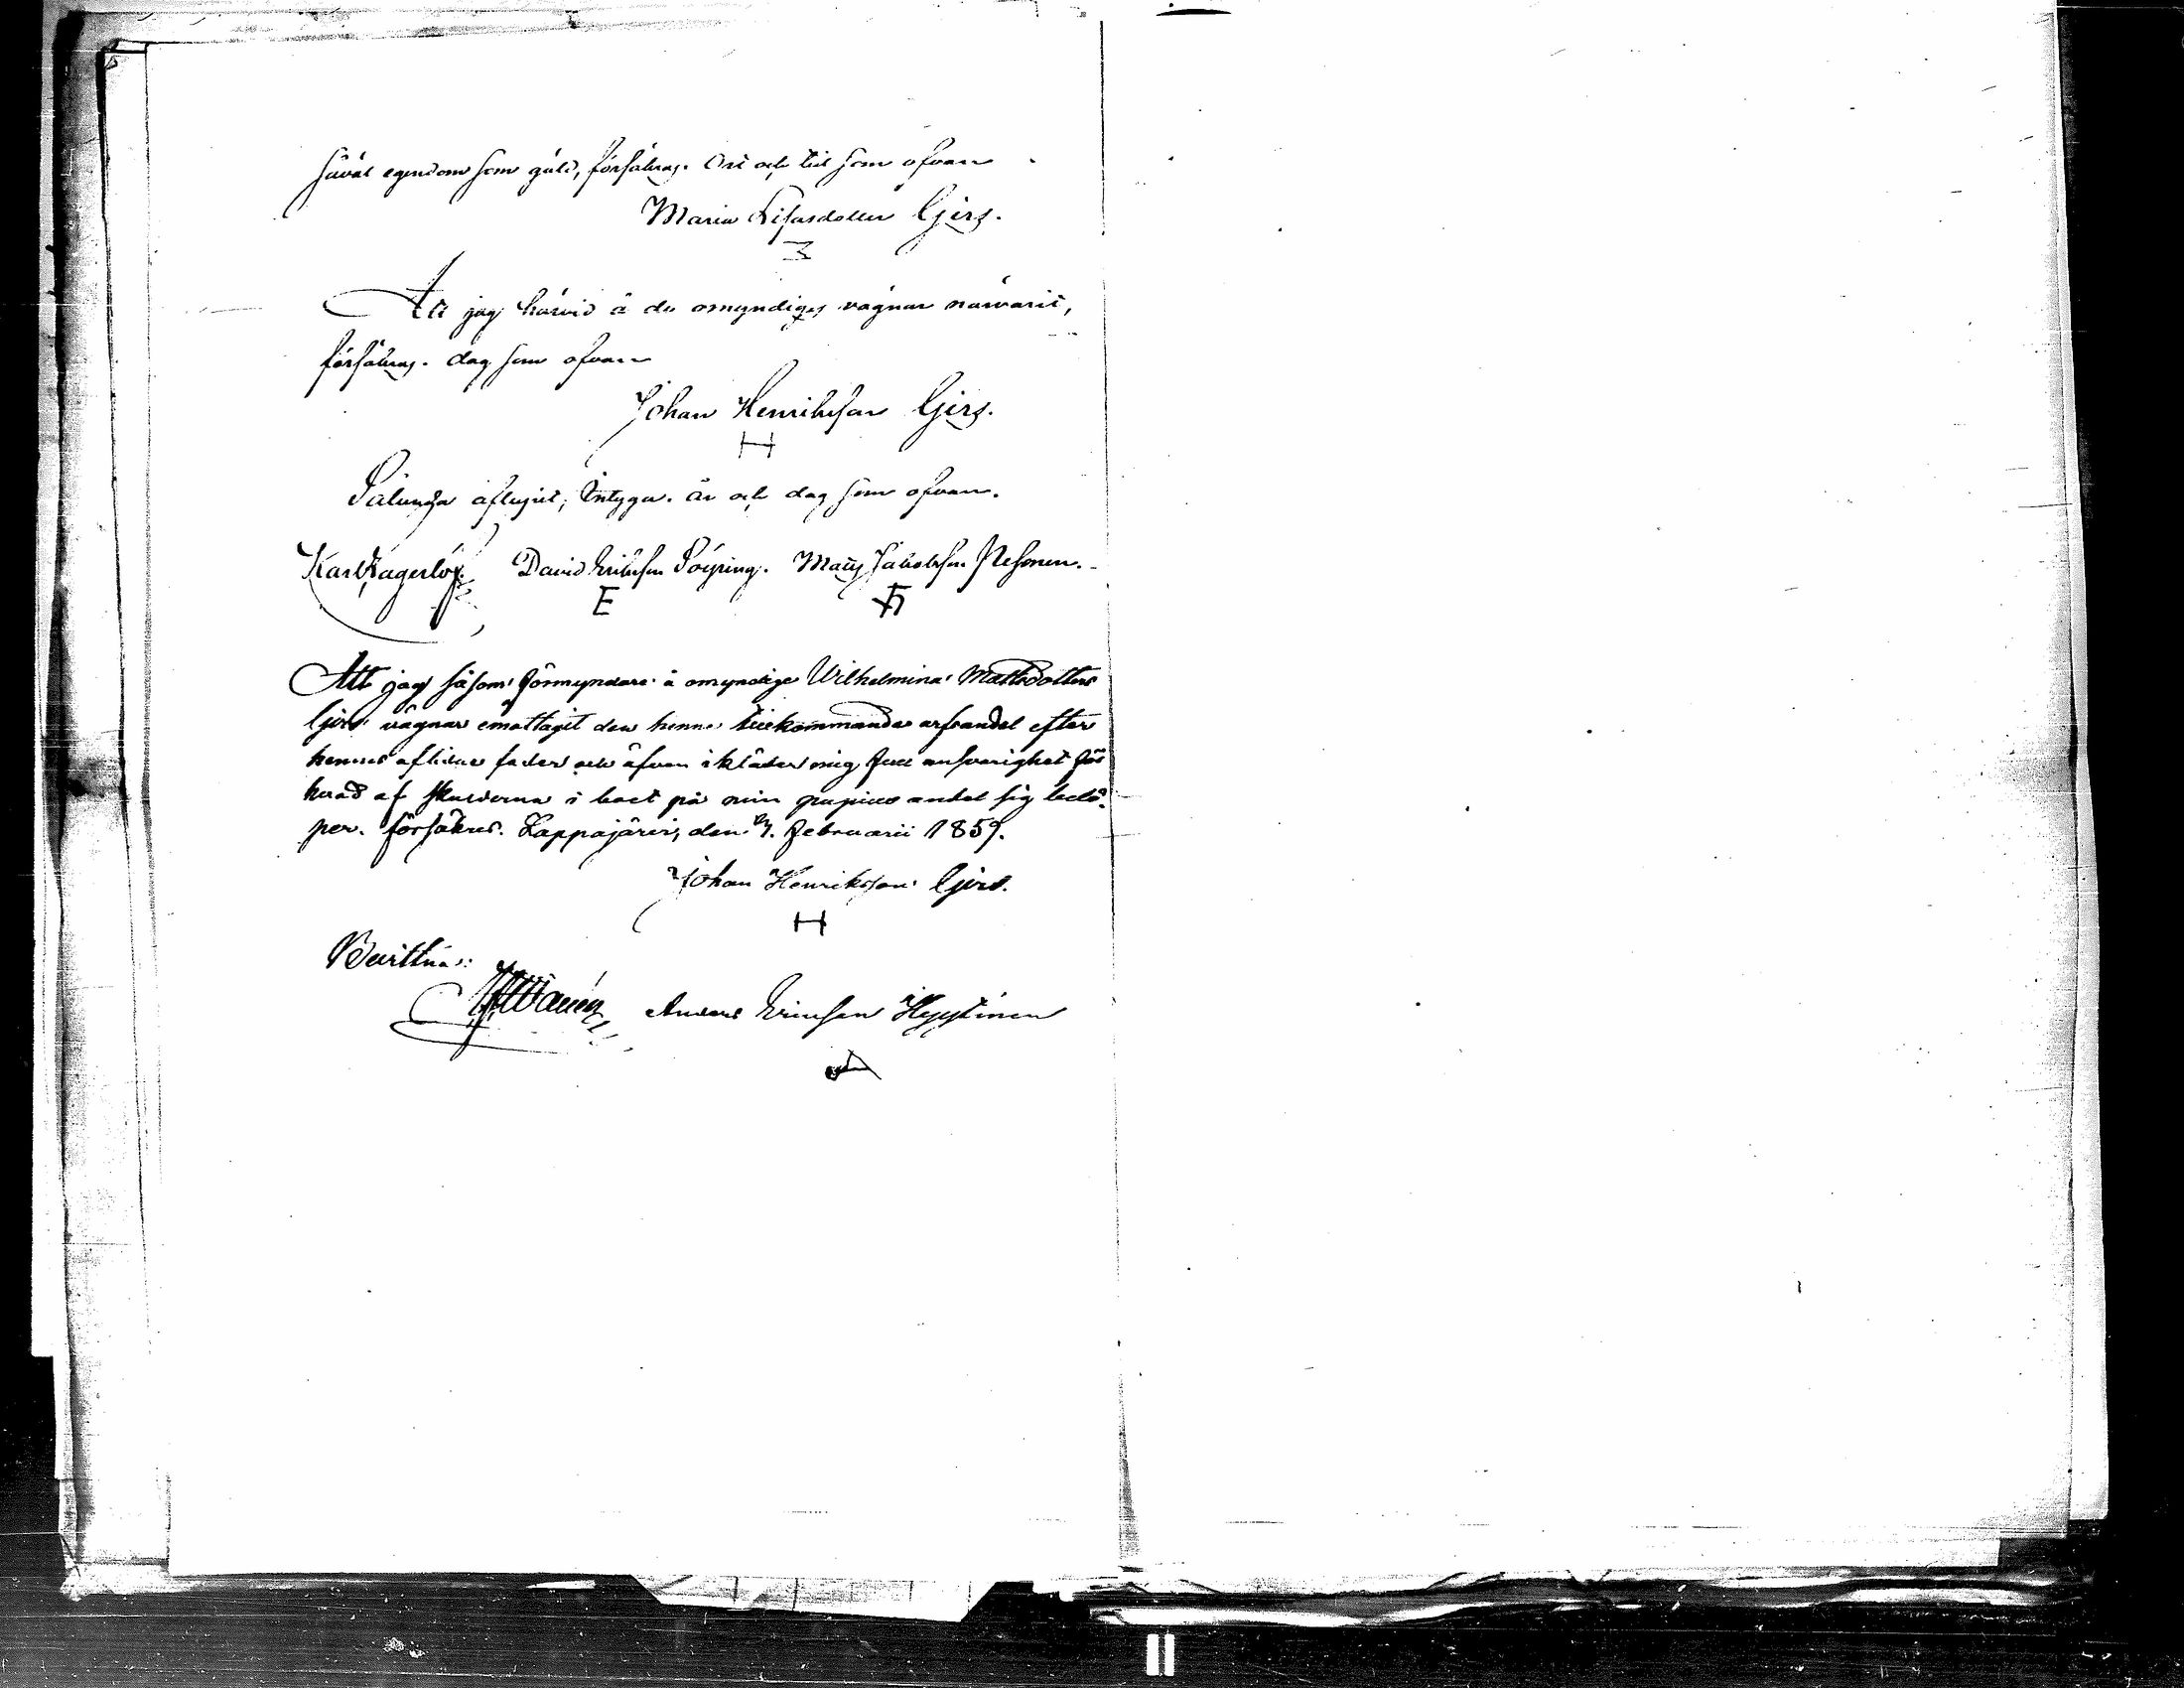 såväl egendom som gäld, försäkras. Ort och tid som ofvan
Maria Lisasdotter Gjers.
Att jag härvid å de omyndigas vägnar närvarit,
försäkras. dag som ofvan
Johan Henriksson Gjers.
H
Sålunda aflupit, Intyga. år och dag som ofvan.
Karl Lagerlöf. David Eriksson Söyring. Matts Jakobsson Nesonen.
E
Att jag såsom förmyndare å omyndige Wilhelmina Mattsdotters
Gjers vägnar emottagit den henne tillkommande arfsandel efter
hennes aflidne fader och äfven ikläder mig full ansvarighet för
hvad af skulderna i boet på min pupills andel sig belö-
per. försäkras. Lappajärvi, den 4. Februarii 1859.
Johan Henriksson Gjers.
H
Bevittna:
Anders Ericsson Hyytinen